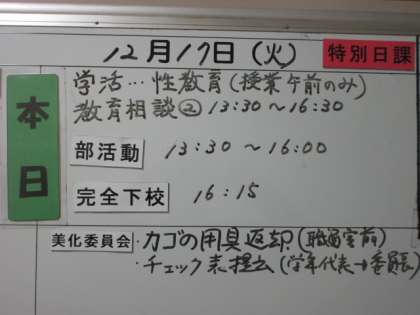 12月17日(火) 特別日課
本日
学活…性教育(授業午前のみ)
教育相談② 13:30〜16:30
部活動 13:30〜16:00
完全下校 16:15
美化委員会・カゴの用具返却(職員室前)
・チェック表提出(学年代表→委員長)